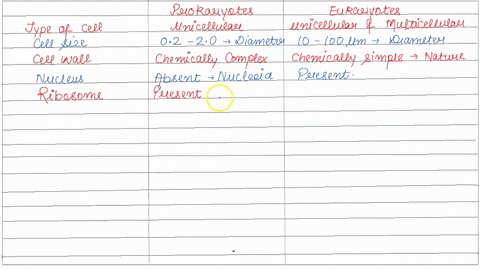 Prokaryotes Eukaryotes
Type of Cell Unicellular Unicellular & Multicellular
Cell size 0.2 - 2.0 → Diameter 10 - 100 µm → Diameter
Cell wall Chemically Complex Chemically simple → Nature
Nucleus Absent → Nucleoid Present.
Ribosome Present